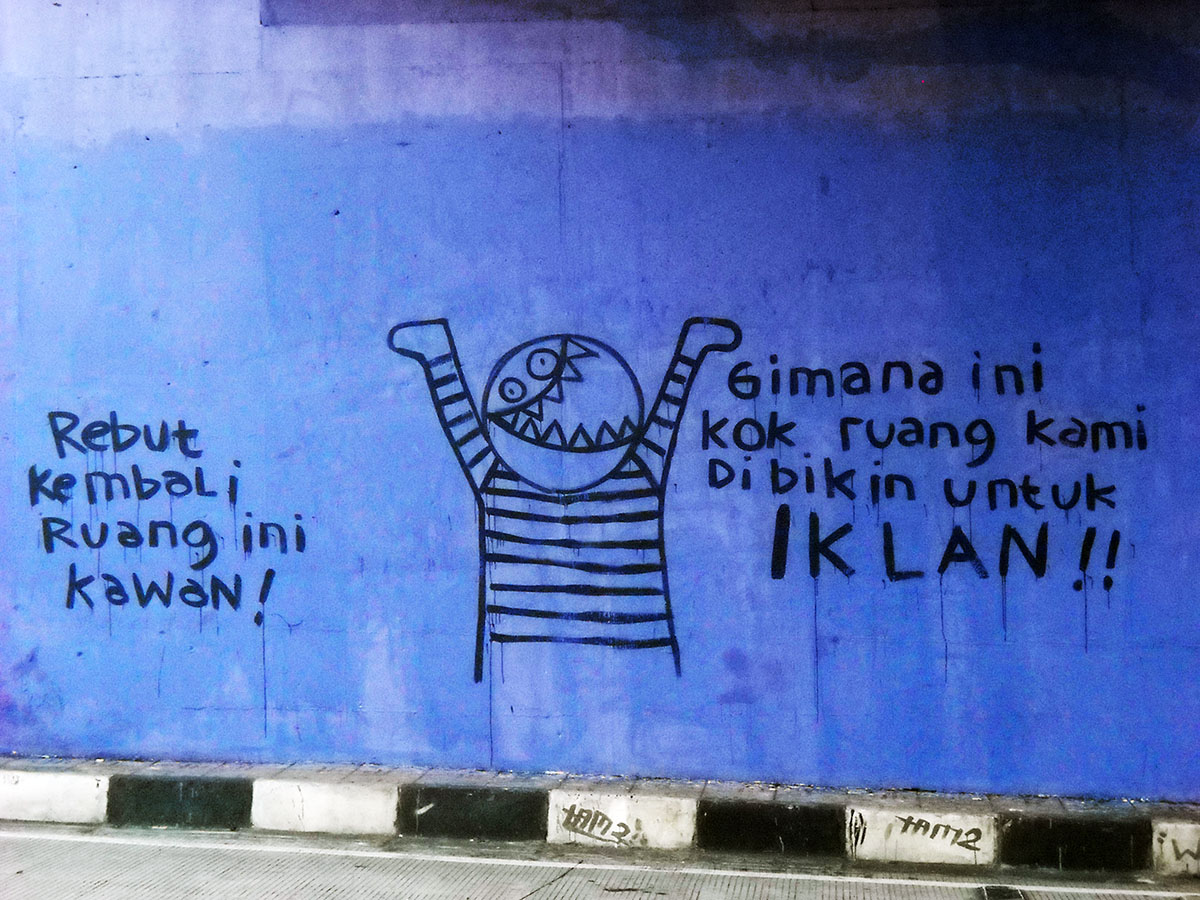 Rebut
kembali
Ruang ini
kawan!
Gimana ini
kok ruang kami
Dibikin untuk
IKLAN!!
tamz
tamz